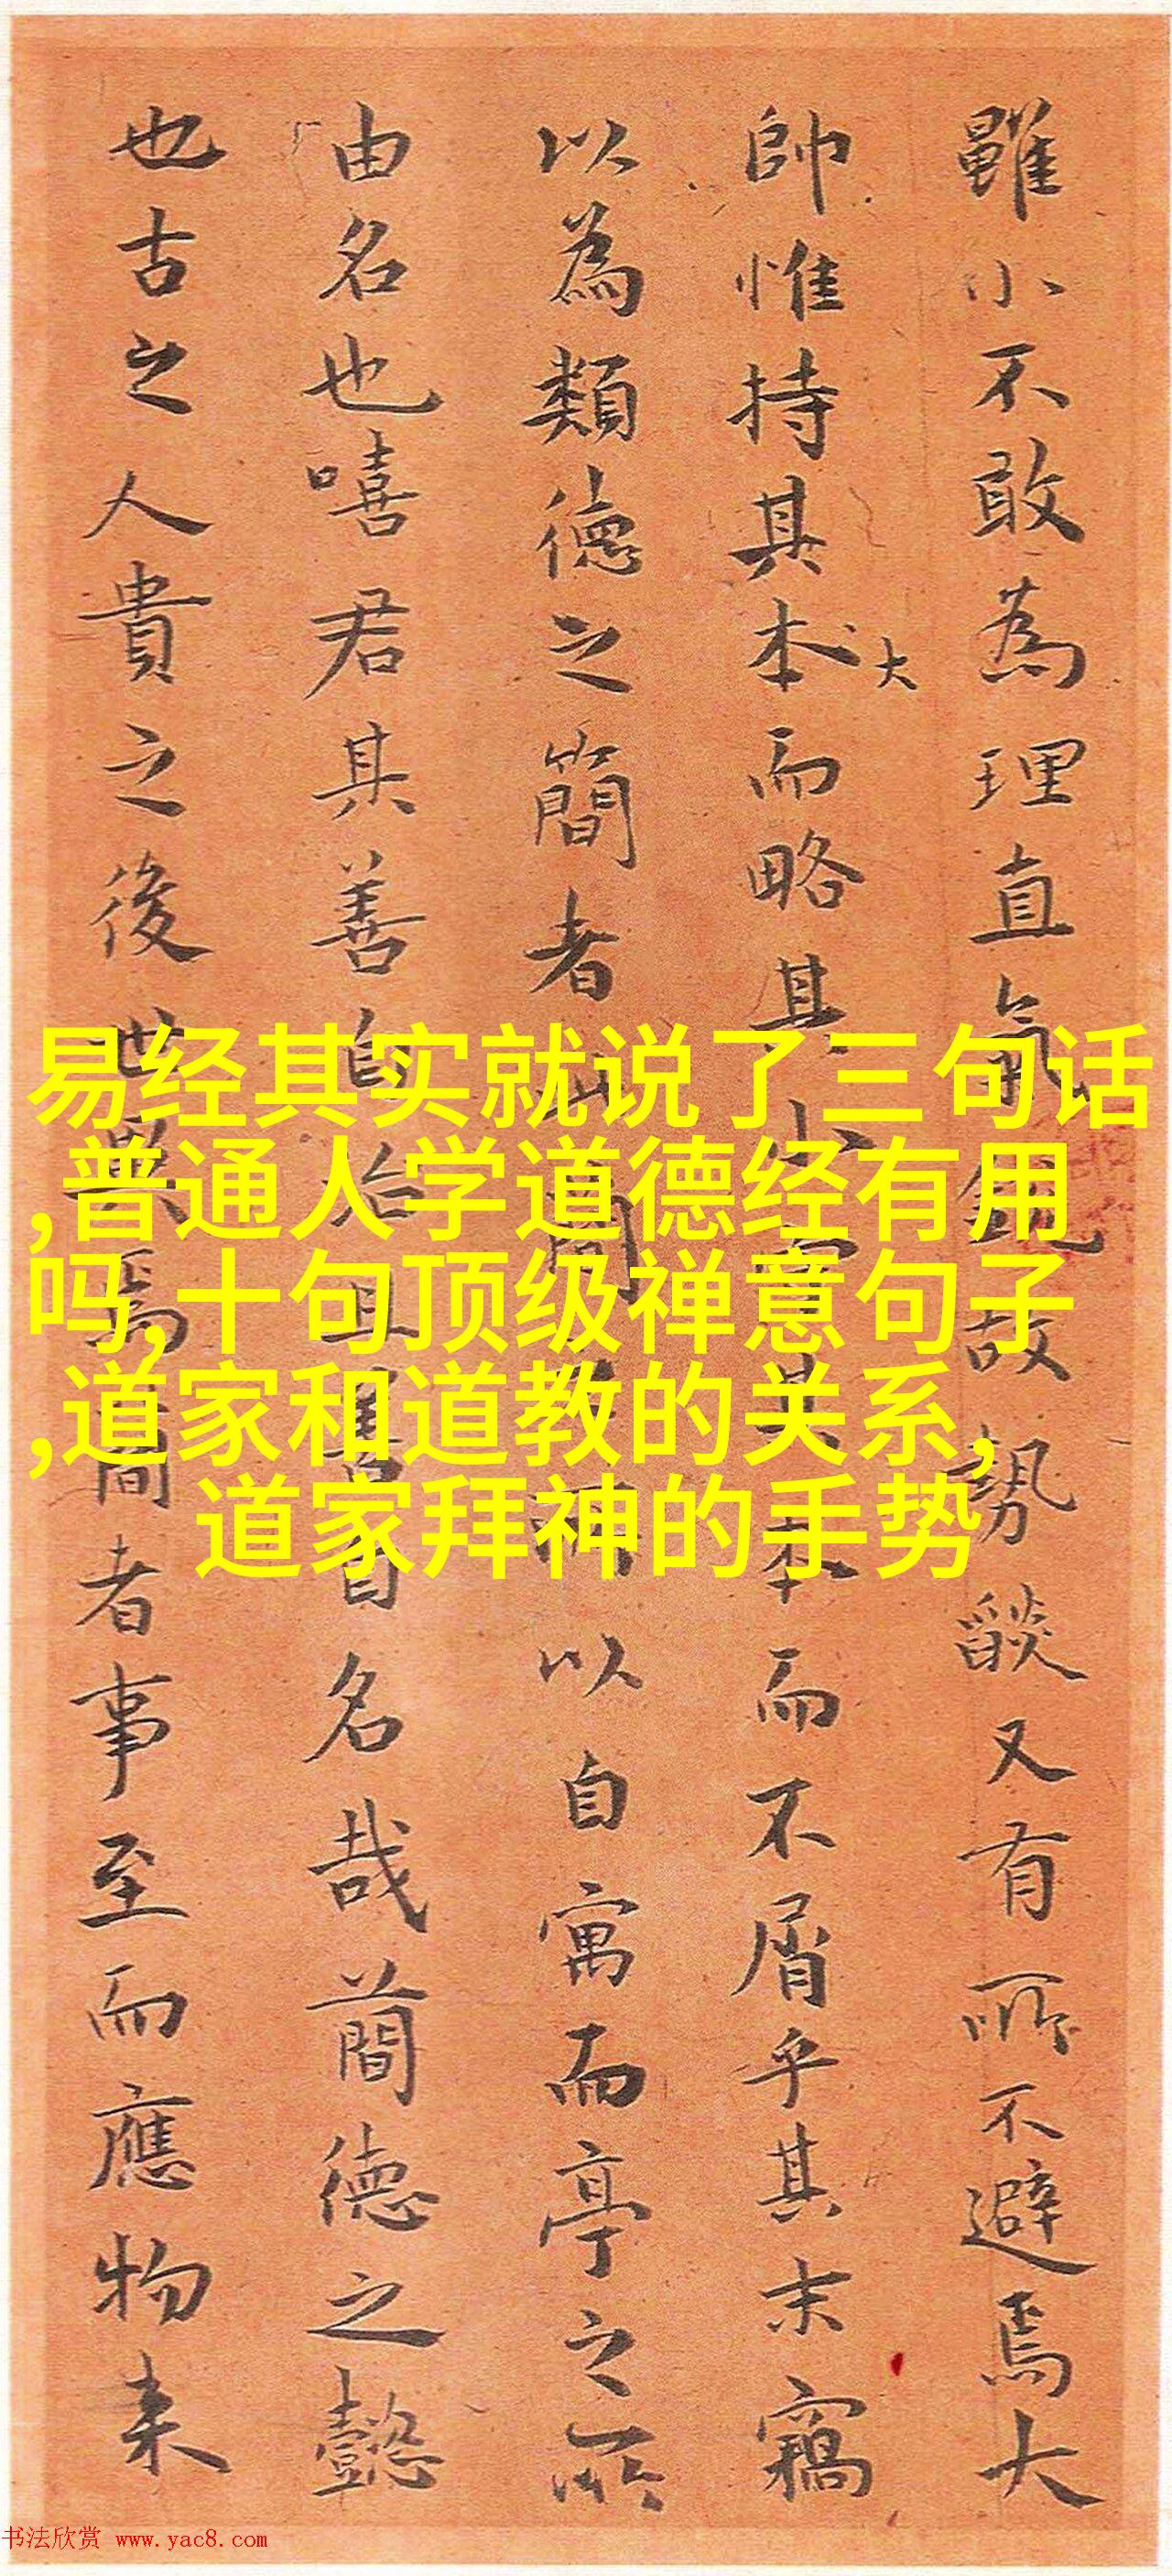 雖小不敢為理直氣鋭故勢燄又有所不避焉大
帥惟持其本而略其小
大
本而不屑乎其末竊
以為類德之簡者
以自寓而亭之所
由名也嘻君其善自治且善自名哉簡德之懿
也古之人貴之後世興焉簡者事至而應物来
易经其实就说了三句话
,普通人学道德经有用
吗,十句顶级禅意句子
,道家和道教的关系,
道家拜神的手势
书法欣赏 www.yac8.com